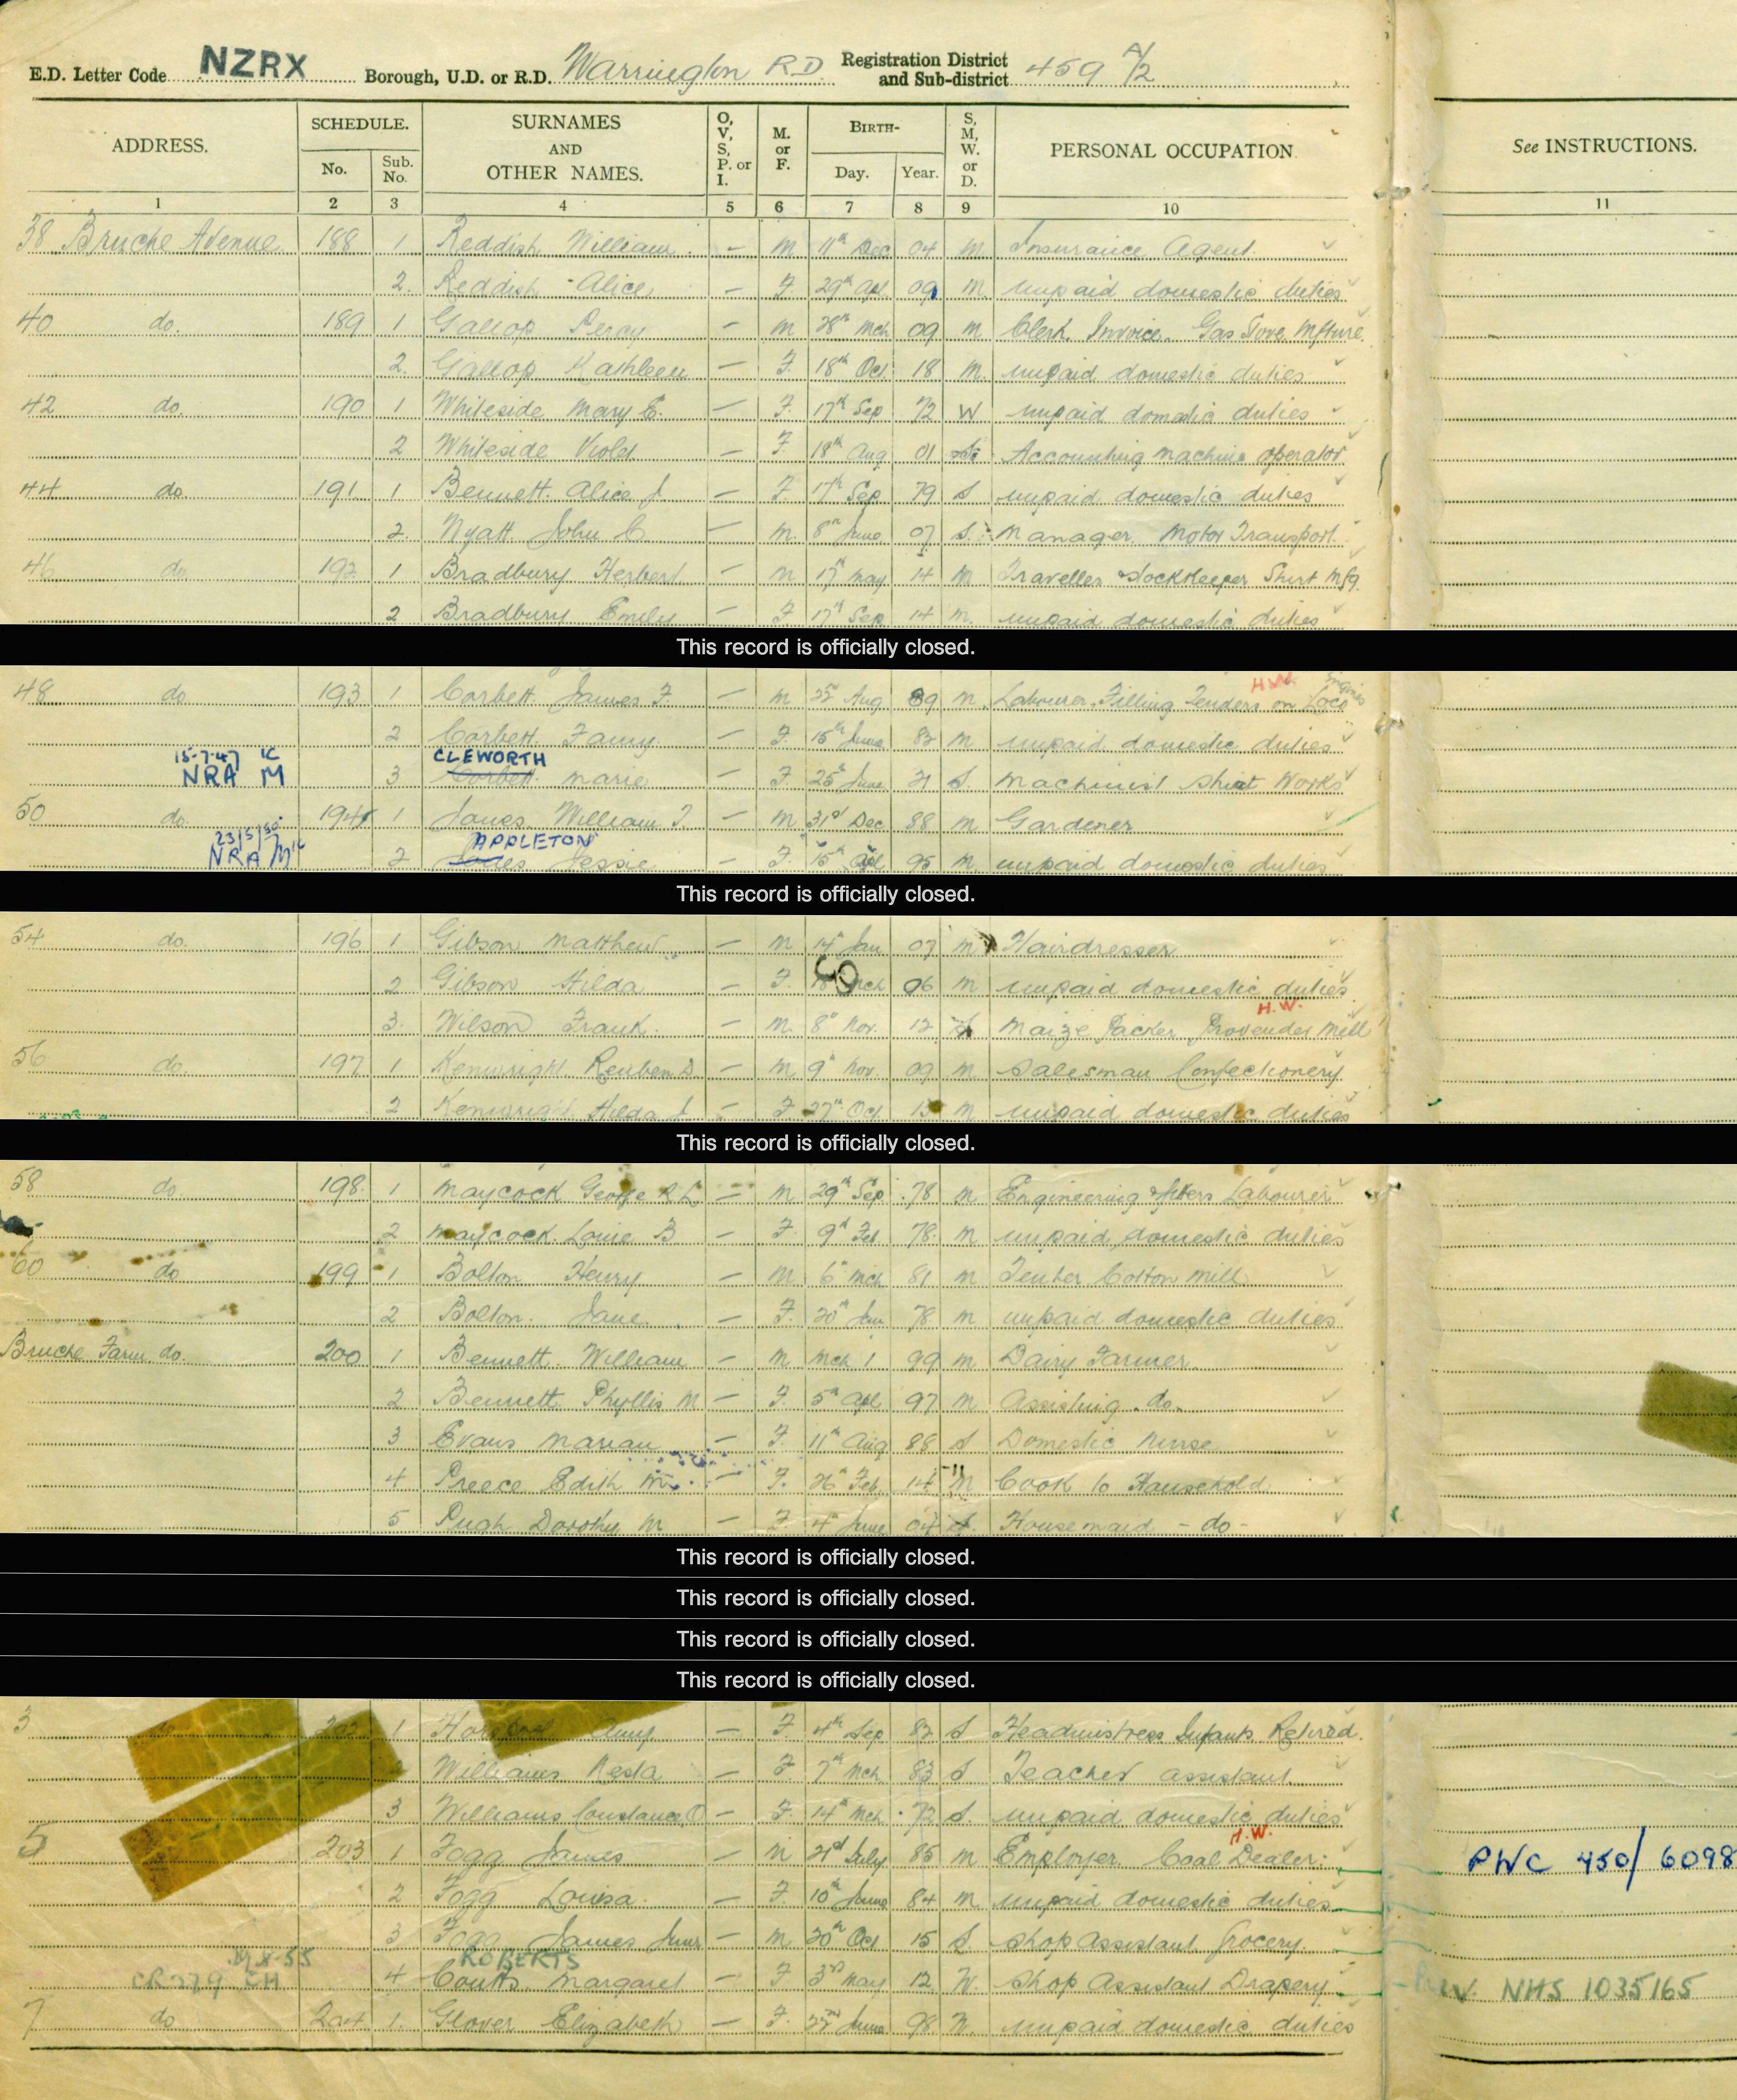 E.D. Letter Code NZRX Borough, U.D. or R.D. Warrington R.D. Registration District and Sub-district 459 A/2
ADDRESS. SCHEDULE. No. Sub. No. SURNAMES AND OTHER NAMES. O, V, S, P. or I. M. or F. BIRTH- Day. Year. S, M, W. or D. PERSONAL OCCUPATION. See INSTRUCTIONS.
1 2 3 4 5 6 7 8 9 10 11
38 Bruche Avenue 188 1 Reddish William. – M 11th Dec 04 M Insurance Agent.
2. Reddish Alice – F. 29th Apl 09 M. unpaid domestic duties
40 do. 189 1 Gallop Percy – M 28th Mch 09 M Clerk Invoice. Gas Stove Mfture.
2. Gallop Kathleen – F. 18th Oct 18 M. unpaid domestic duties
42 do. 190 1 Whiteside Mary E. – F. 17th Sep 72 W unpaid domestic duties
2 Whiteside Violet – F. 18th Aug 01 Accounting machine operator
44 do. 191 1 Bennett Alice J – F. 17th Sep 79 S unpaid domestic duties
2. John C. – M. 8th June 07 S. Manager. Motor Transport.
46 do. 192 1 Bradbury Herbert – M 17th May 14 M Traveller Stockkeeper Shirt Mfg.
2 Bradbury Emily – F 17th Sep 14 M. unpaid domestic duties
This record is officially closed.
H.W. Engines
48 do. 193 1 Corbett James F. – M Aug 89 M. Labourer Filling Tenders on Loco
2 Corbett Fanny. – F. 15th June 82 M unpaid domestic duties
15-7-47 IC CLEWORTH
NRA M 3 Corbett Marie – F. 25th June 21 S. Machinist Shirt Works
50 do. 194 1 Jones William J. – M 31st Dec 88 M Gardener
23/5/50 APPLETON
NRA M 2 Jones Jessie – F. 15th Apl 95 M. unpaid domestic duties
This record is officially closed.
54 do. 196 1 Gibson Matthew – M 14th Jan 07 M Hairdresser
2 Gibson Hilda – F. Mch 06 M unpaid domestic duties
H.W.
3. Wilson Frank. – M. 8th Nov. 12 Maize Packer Provender Mill
56 do. 197 1 Kenwright Reuben – M 9th Nov. 09 M Salesman Confectionery
2 Kenwright Hilda J – F 27th Oct 13 M unpaid domestic duties
This record is officially closed.
58 do 198. 1 Maycock George R L – M 29th Sep 78 M Engineering fitters Labourer
2 Maycock Louie B – F. 9th Feb 78. M unpaid domestic duties
60 do 199 1 Bolton Henry – M 6th Mch 81 M Tenter Cotton Mill
2 Bolton. Jane. – F. 20th Jan 78 M unpaid domestic duties
Bruche Farm do. 200 1 Bennett William – M Mch 1 99 M Dairy Farmer.
2 Bennett Phyllis M – F. 5th Apl 97 M Assisting do.
3 Evans Marian – F. 11th Aug 88 S Domestic Nurse
4 Preece Edith M. – F. 26th Feb 14 M Cook to Household
5 Pugh Dorothy M – F. 4th June 04 Housemaid - do -
This record is officially closed.
This record is officially closed.
This record is officially closed.
This record is officially closed.
3 do 202 1 Amy – F. 4th Sep 82 S Headmistress Infants Retired.
Williams Nesta – F. 7th Mch 83 S Teacher assistant.
3 Williams Constance O – F. 14th Mch 72 S. unpaid domestic duties
H.W.
5 203 1 Fogg James – M July 85 M Employer. Coal Dealer. PWC 450/ 6098
2 Fogg Louisa. – F. 10th June 84 M unpaid domestic duties
3 Fogg James Junr – M 20th Oct 15 S. Shop Assistant Grocery.
ROBERTS
4 Margaret – F 3rd May 12 W. Shop Assistant Drapery. NHS 1035165
7 do 204 1. Glover Elizabeth – F. June 98 W. unpaid domestic duties